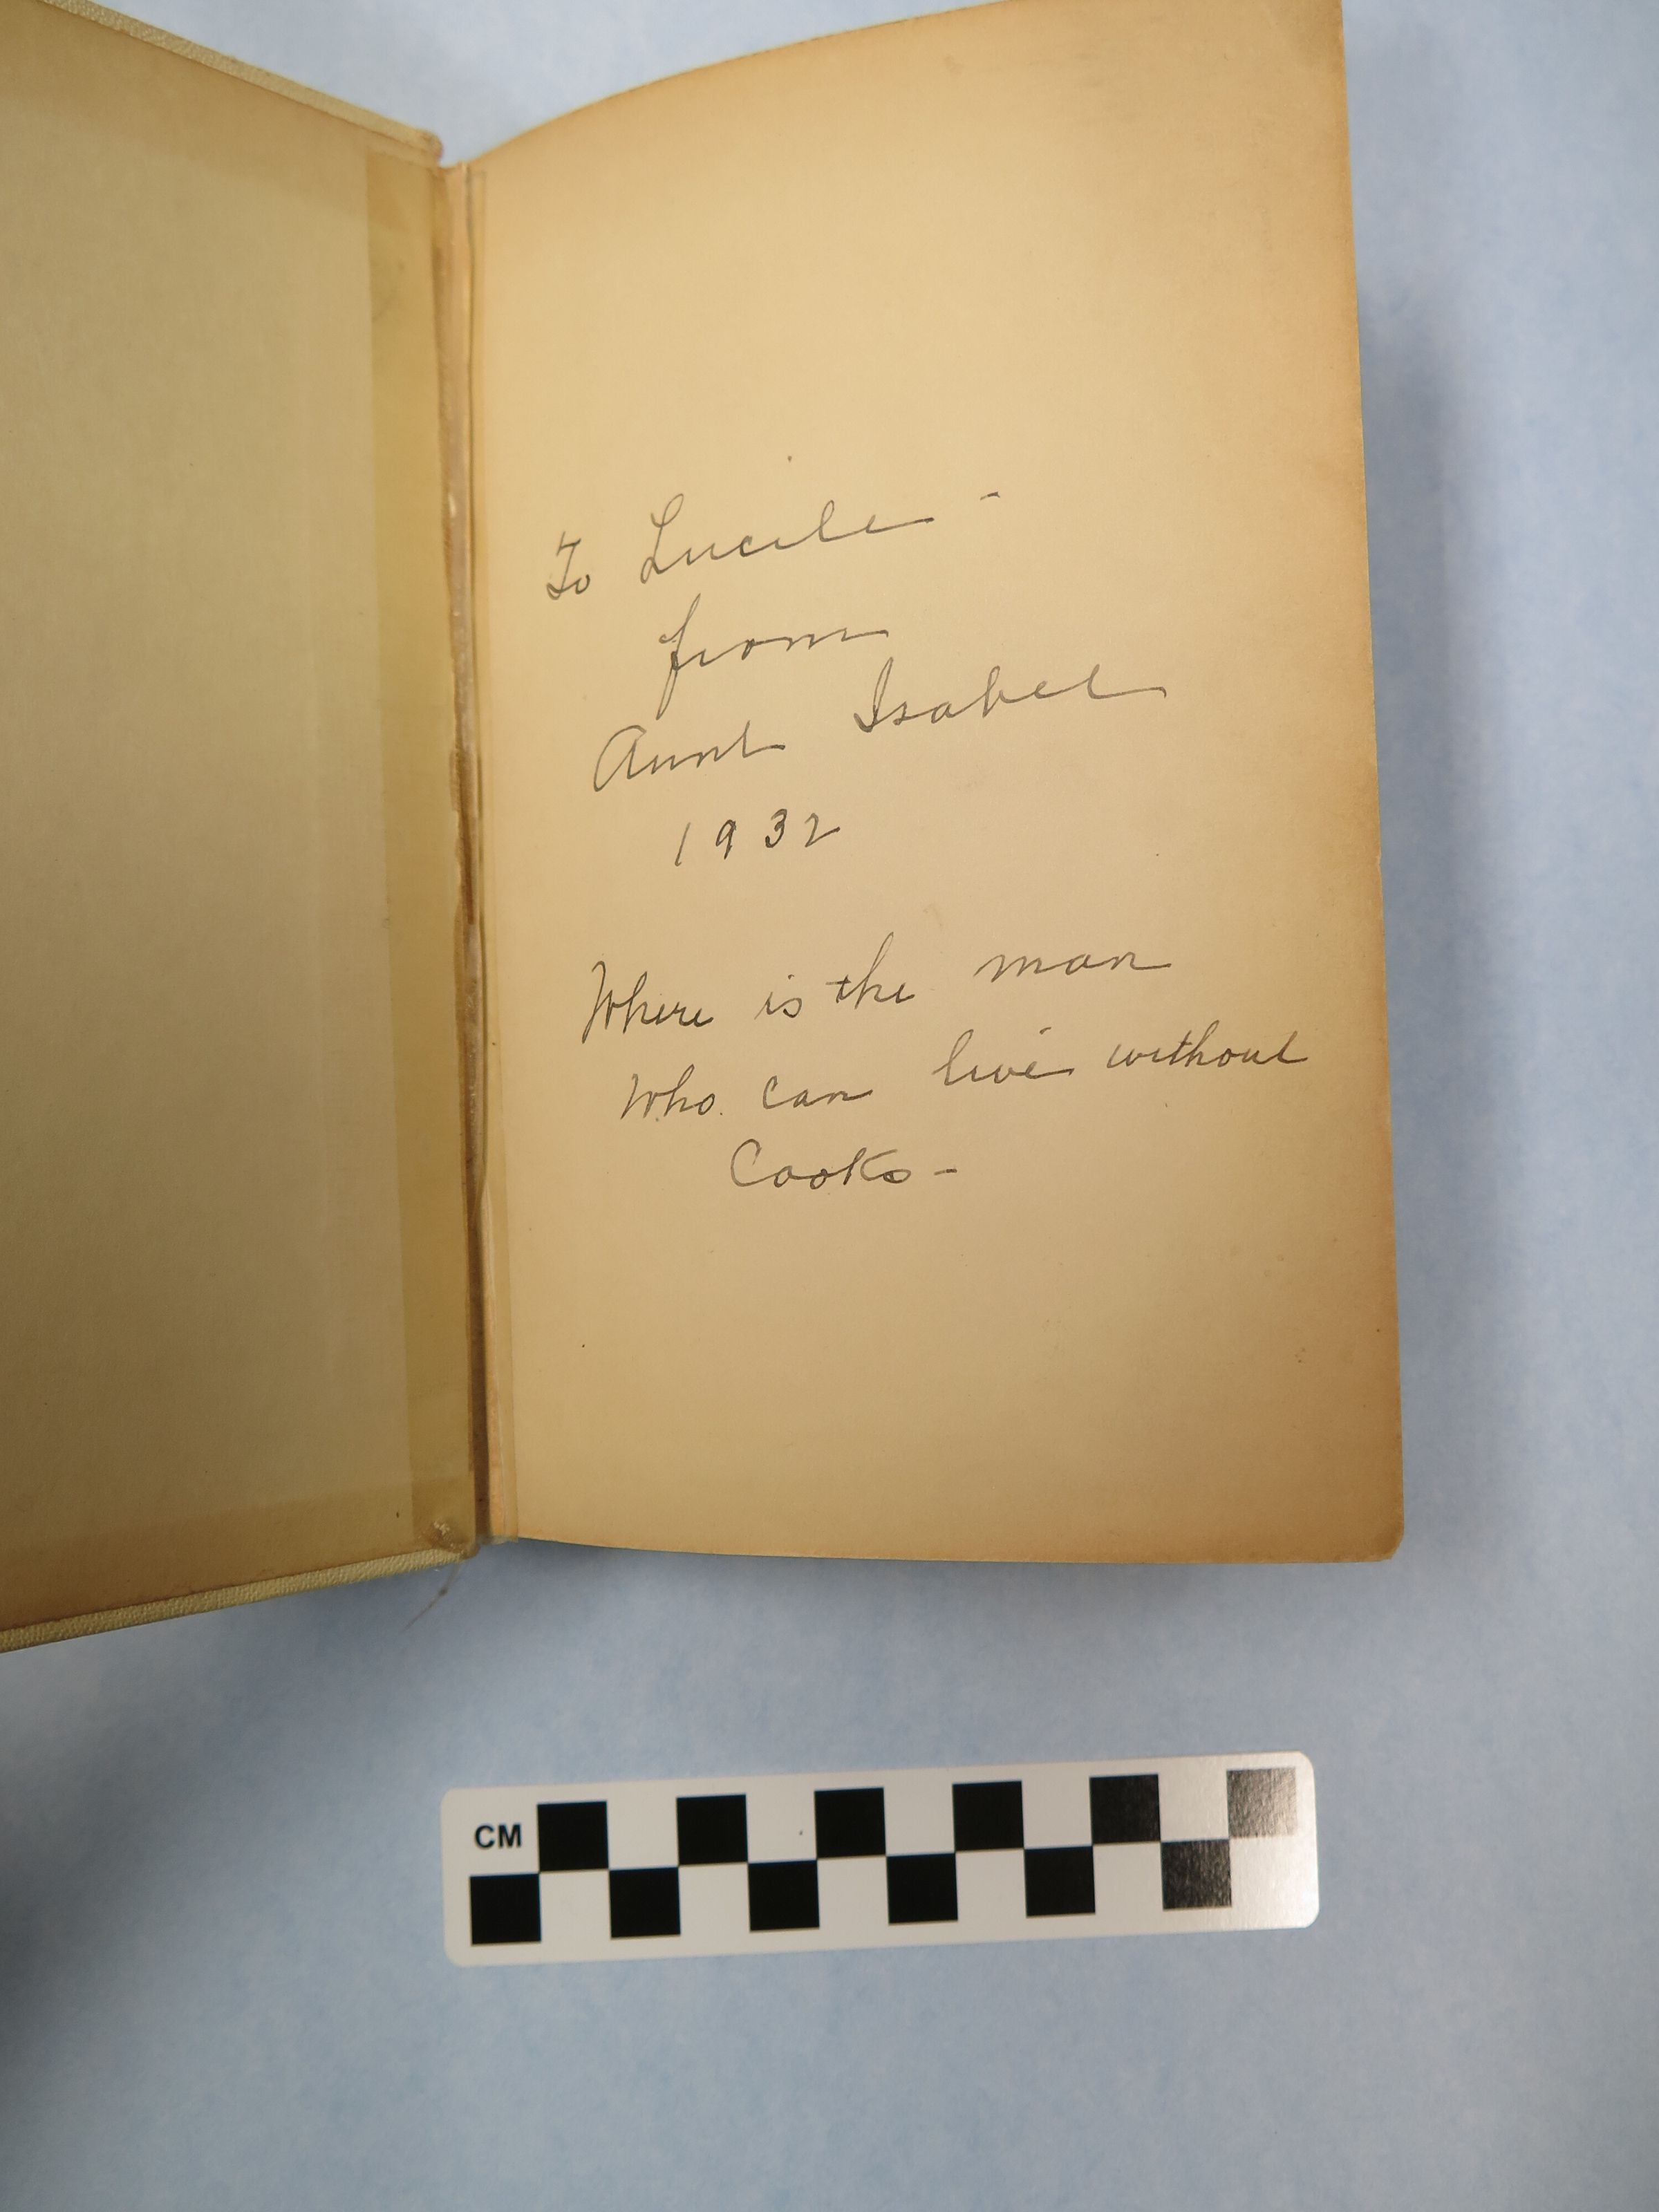 To Lucile -
from
Aunt Isabel
1932
Where is the man
Who can live without
Cooks -
CM